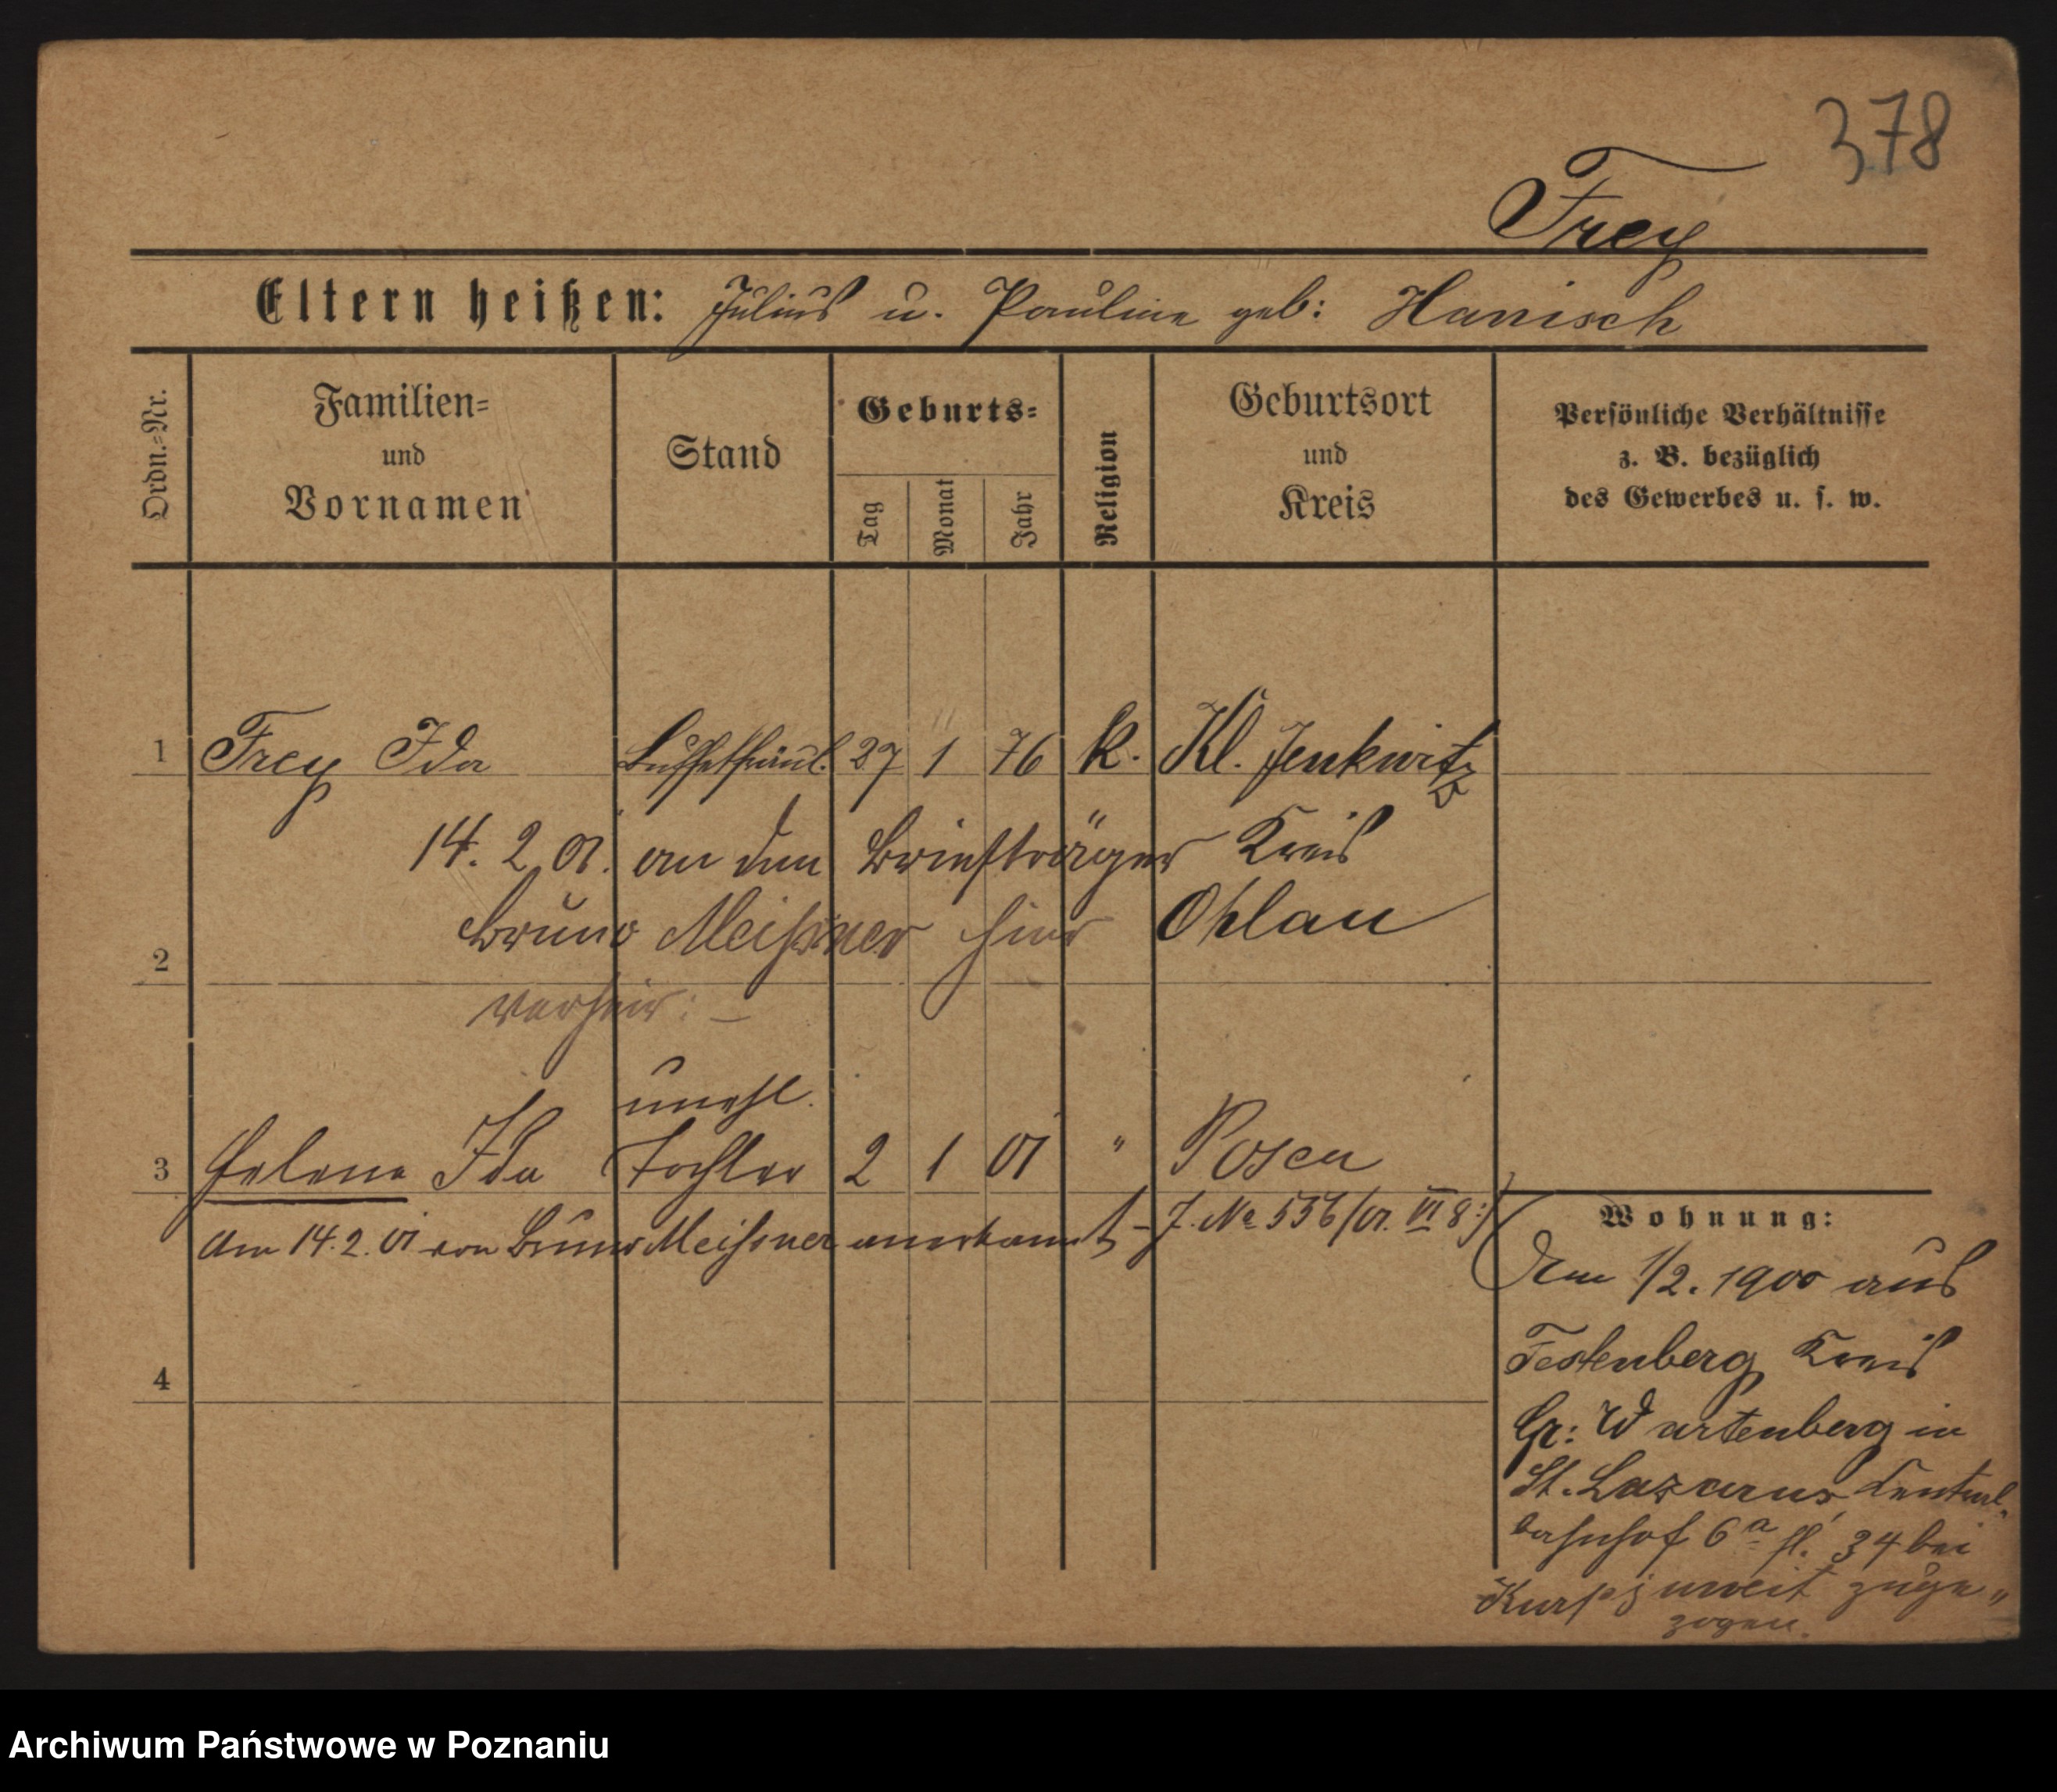 378
Frey
Eltern heißen: Julius u. Pauline geb: Hanisch
Ordn.=Nr.
Familien=
und
Vornamen
Stand
Geburts=
Tag
Monat
Jahr
Religion
Geburtsort
und
Kreis
Persönliche Verhältnisse
z. B. bezüglich
des Gewerbes u. s. w.
1 Frey Ida Buffetfräul. 27 1 76 k. Kl. Jenkwitz
14. 2. 01. an den Briefträger Kreis
Bruno Meißner hier Ohlau
2
verheir: –
unehl.
3 Helene Ida Tochter 2 1 01 " Posen
Am 14. 2. 01 von Bruno Meißner anerkannt – J. No 536/01. VI 8:/
4
Wohnung:
Am 1/2. 1900 aus
Festenberg Kreis
Gr: Wartenberg in
St. Lazarus Central-
bahnhof 6a 34 bei
zuge"
zogen.